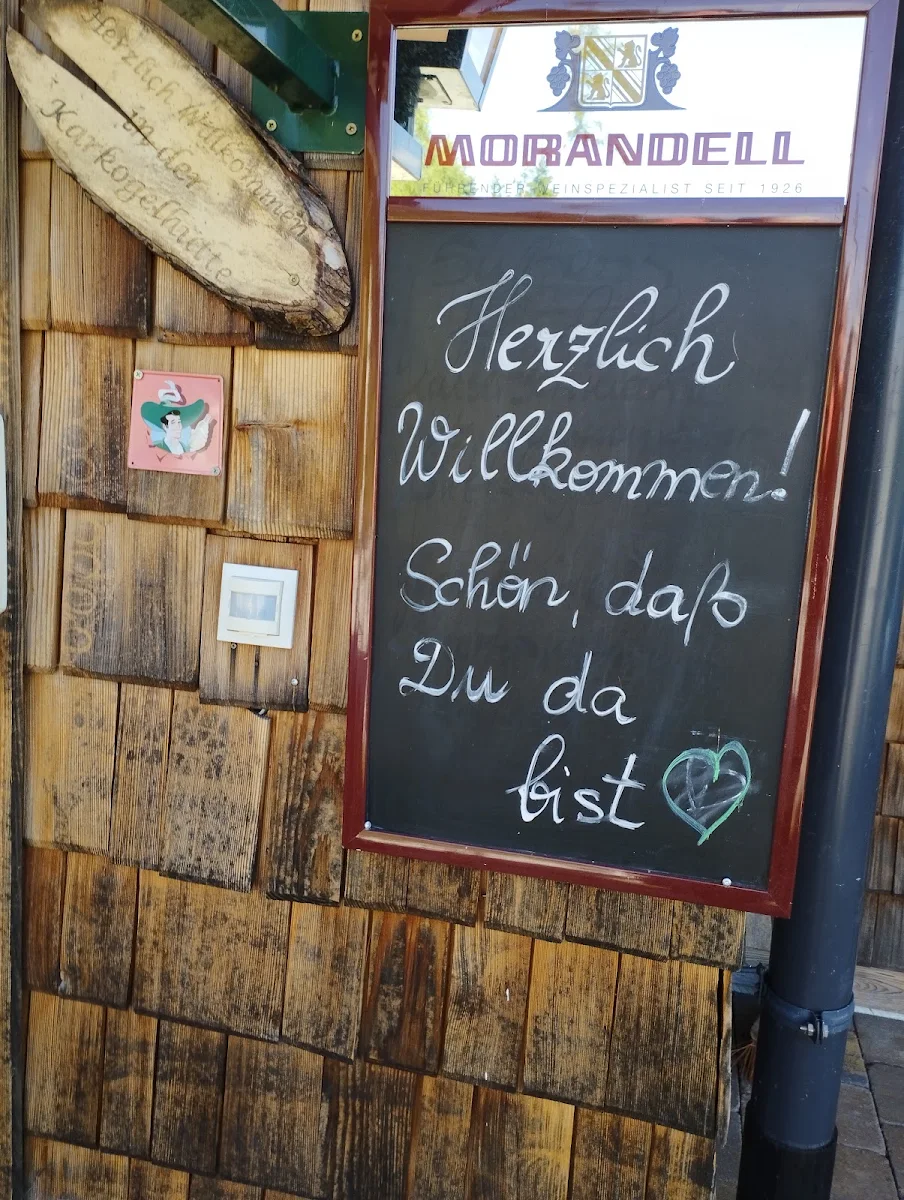 Herzlich Willkommen
in der
Karkogelhütte
MORANDELL
FÜHRENDER WEINSPEZIALIST SEIT 1926
Herzlich
Willkommen!
Schön, daß
Du da
bist